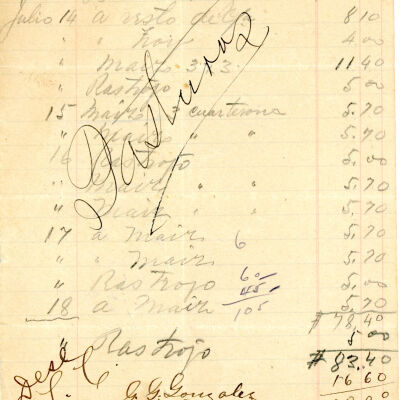 Julio 14 a resto de 8 10
" " 4 00
" Maiz 3 3. 11 40
" Rastrojo 5 00
15 Maiz 3 cuarterona 5.70
" Maiz " " 5.70
16 Rastrojo 5.00
" Maiz " " 5.70
" Maiz " " 5.70
17 a Maiz 6 5.70
" " Maiz 5.70
" Rastrojo 5.00
60
45
105
18 a Maiz 5.70
# 78.40
" Rastrojo 5 00
# 83.40
16 60
G. G. Gonzalez